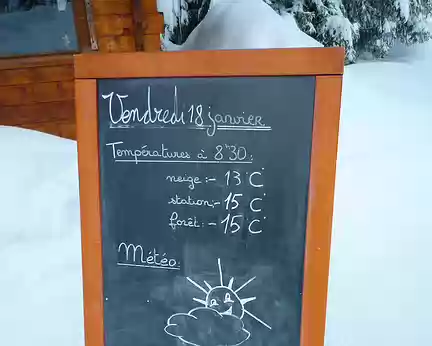 Vendredi 18 janvier
Températures à 8h30:
neige: -13°C
station: -15°C
forêt: -15°C
Météo: